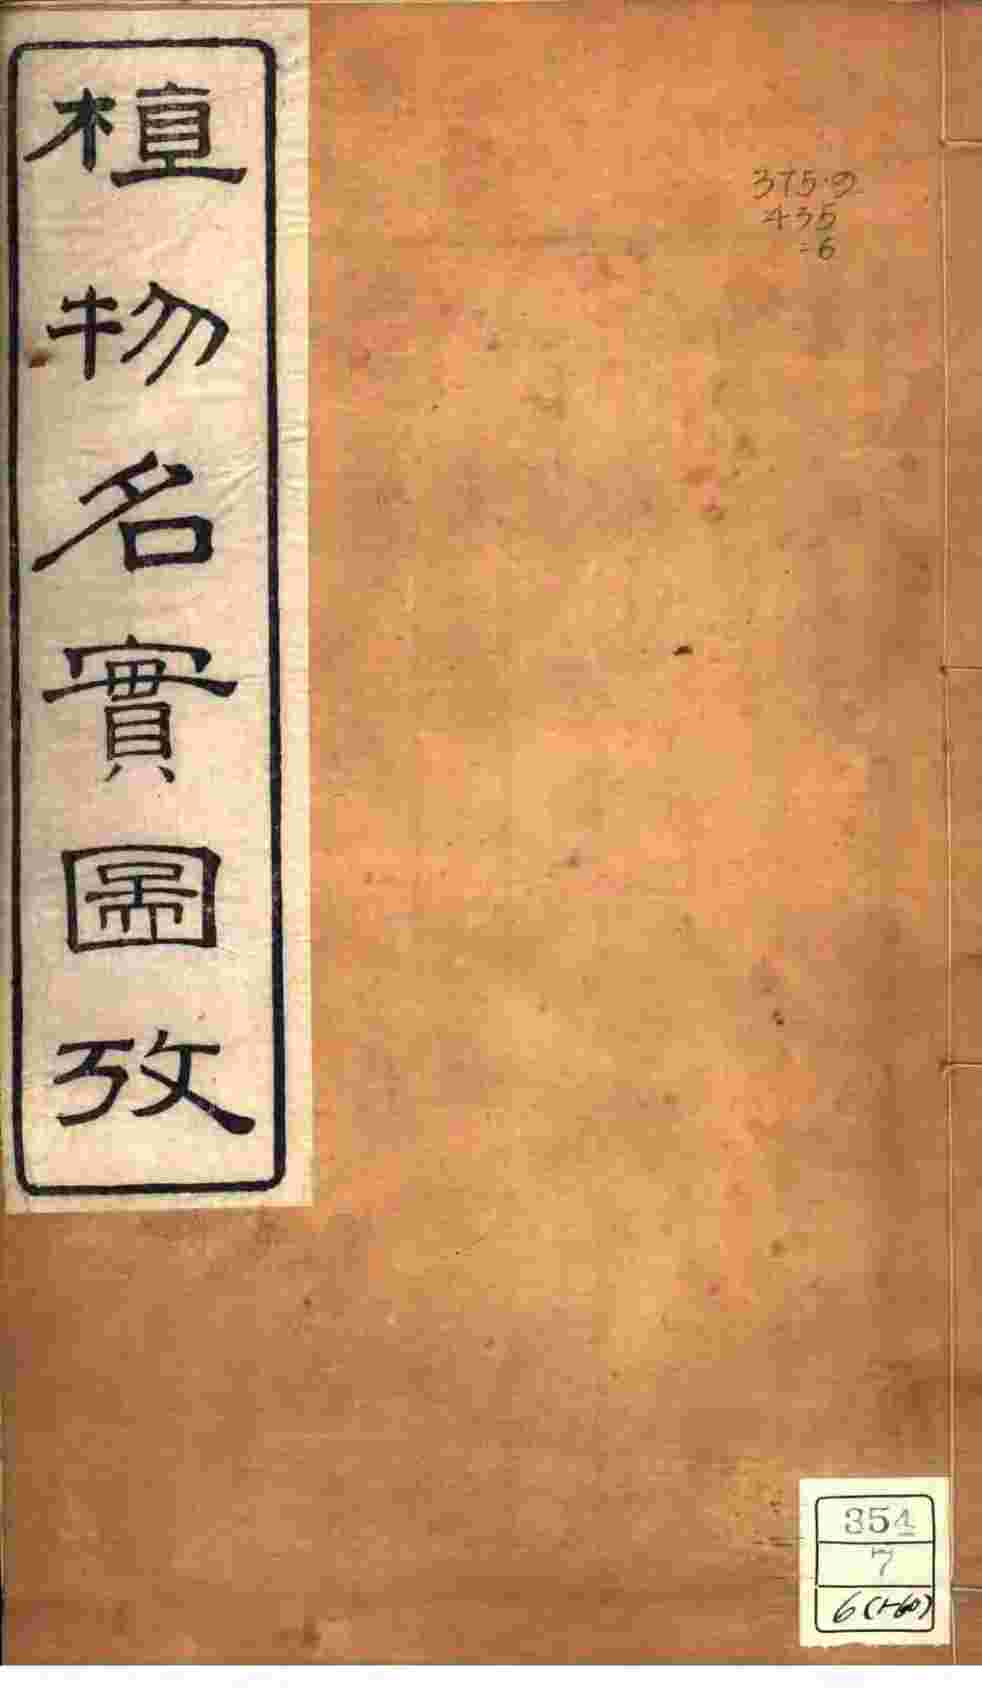 植物名實圖攷
375.9
435
=6
354
7
6(1-60)